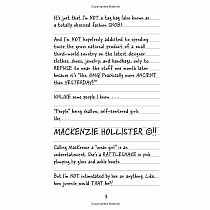 It's just that I'm NOT a tag hag (also known as
a totally obsessed fashion SNOB).
And I'm NOT hopelessly addicted to spending
twice the gross national product of a small
third-world country on the latest designer
clothes, shoes, jewelry, and handbags, only to
REFUSE to wear the stuff one month later
because it's "like, OMG! Practically more ANCIENT
than YESTERDAY!!"
UNLIKE some people I know . . .
"People" being shallow, self-centered girls
like . . .
MACKENZIE HOLLISTER ☹!!
Calling MacKenzie a "mean girl" is an
understatement. She's a RATTLESNAKE in pink
plumping lip gloss and ankle boots.
But I'm NOT intimidated by her or anything. Like,
how juvenile would THAT be?!
3